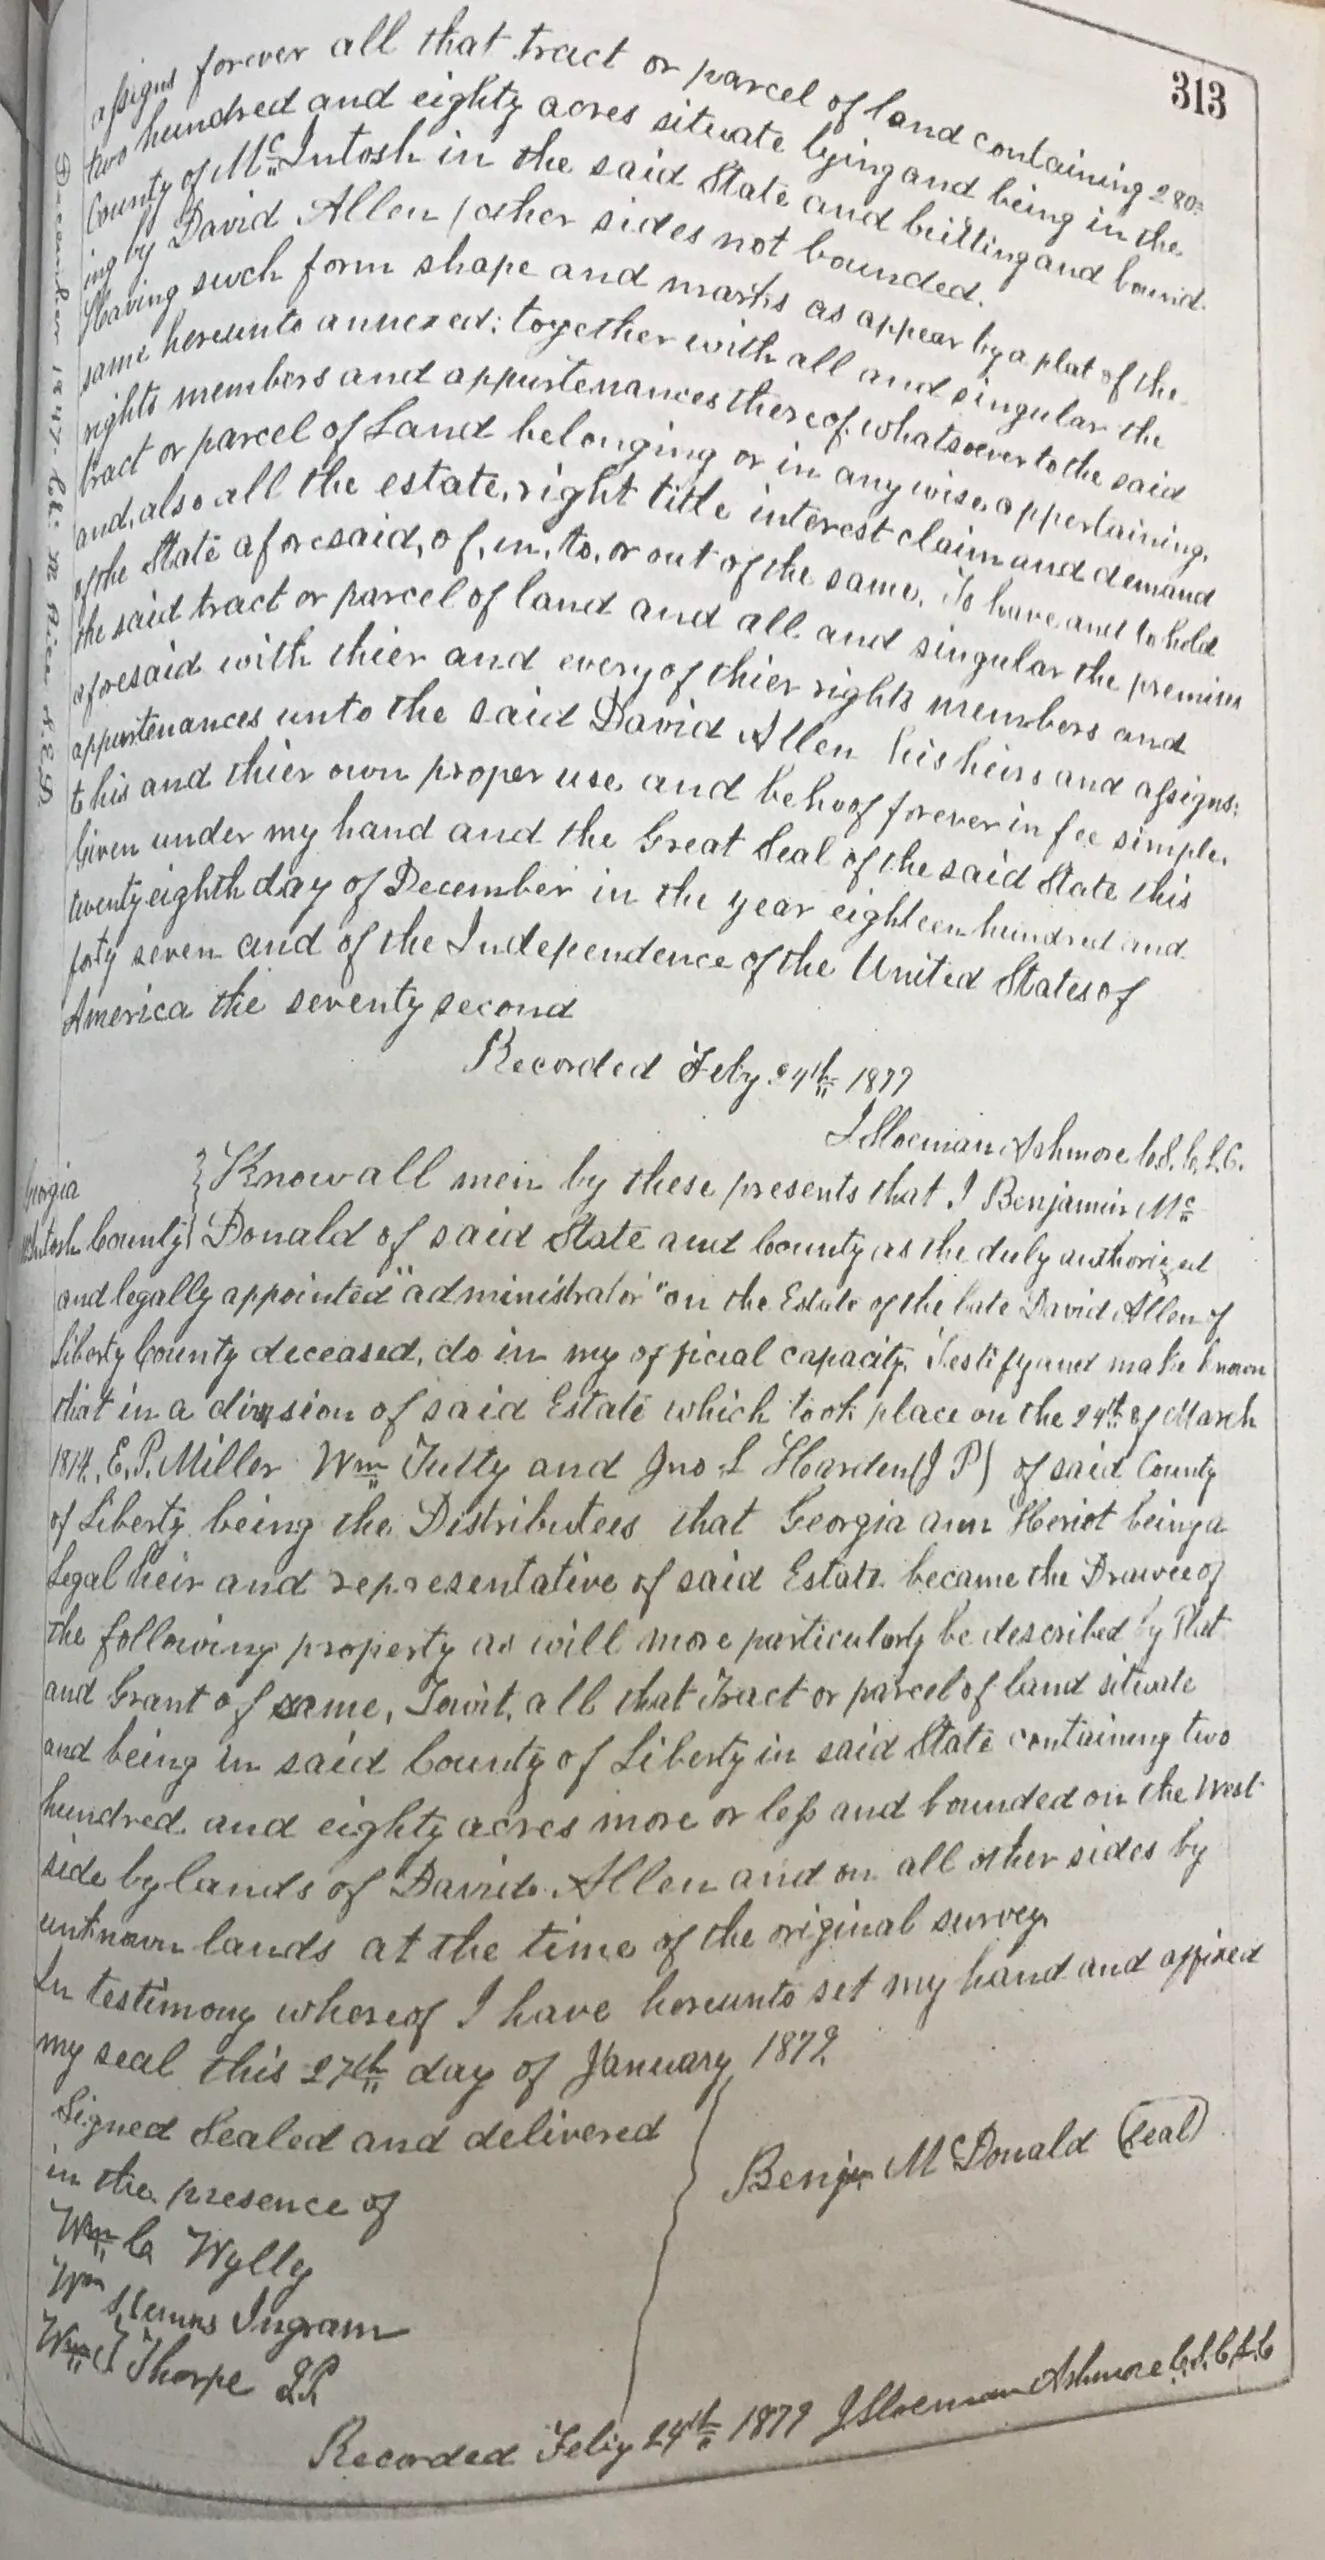 313
assigns forever all that tract or parcel of land containing 280=
two hundred and eighty acres situate lying and being in the
County of Mc Intosh in the said State and beitting and bound-
ing by David Allen / other sides not bounded.
Having such form shape and marks as appear by a plat of the
same hereunto annexed; together with all and singular the
rights members and appurtenances thereof whatsoever to the said
tract or parcel of Land belonging or in any wise appertaining,
and, also all the estate, right title interest claim and demand
of the State aforesaid, of, in, to, or out of the same. To have and to hold
the said tract or parcel of land and all and singular the premises
aforesaid with thier and every of thier rights members and
appurtenances unto the said David Allen his heirs and assigns;
to his and thier own proper use and behoof forever in fee simple.
Given under my hand and the Great Seal of the said State this
twenty eighth day of December in the year eighteen hundred and
forty seven and of the Independence of the United States of
America the seventy second
December 1847
Recorded Feby 24th 1879
Ashmore C.S.C.L.C.
Georgia
McIntosh County
Know all men by these presents that I Benjamin Mc
Donald of said State and County as the duly authorized
and legally appointed "administrator" on the Estate of the late David Allen of
Liberty County deceased, do in my official capacity, Testify and make known
that in a division of said Estate which took place on the 24th of March
E. P. Miller Wm Tutty and Jno L Harden (J P) of said County
of Liberty being the Distributees that Georgia ann Heriot being a
Legal heir and representative of said Estate became the Drawee of
the following property as will more particularly be described by Plat
and Grant of same, Towit, all that Tract or parcel of land situate
and being in said County of Liberty in said State containing two
hundred and eighty acres more or less and bounded on the West
side by lands of David Allen and on all other sides by
unknown lands at the time of the original survey
In testimony whereof I have hereunto set my hand and affixed
my seal this 27th day of January 1879.
Signed Sealed and delivered
in the presence of
Benjn McDonald (Seal)
Wm C Wylly
Wm Ingram
Wm J Thorpe J.P.
Recorded Feby 24th 1879 Ashmore C.S.C.L.C